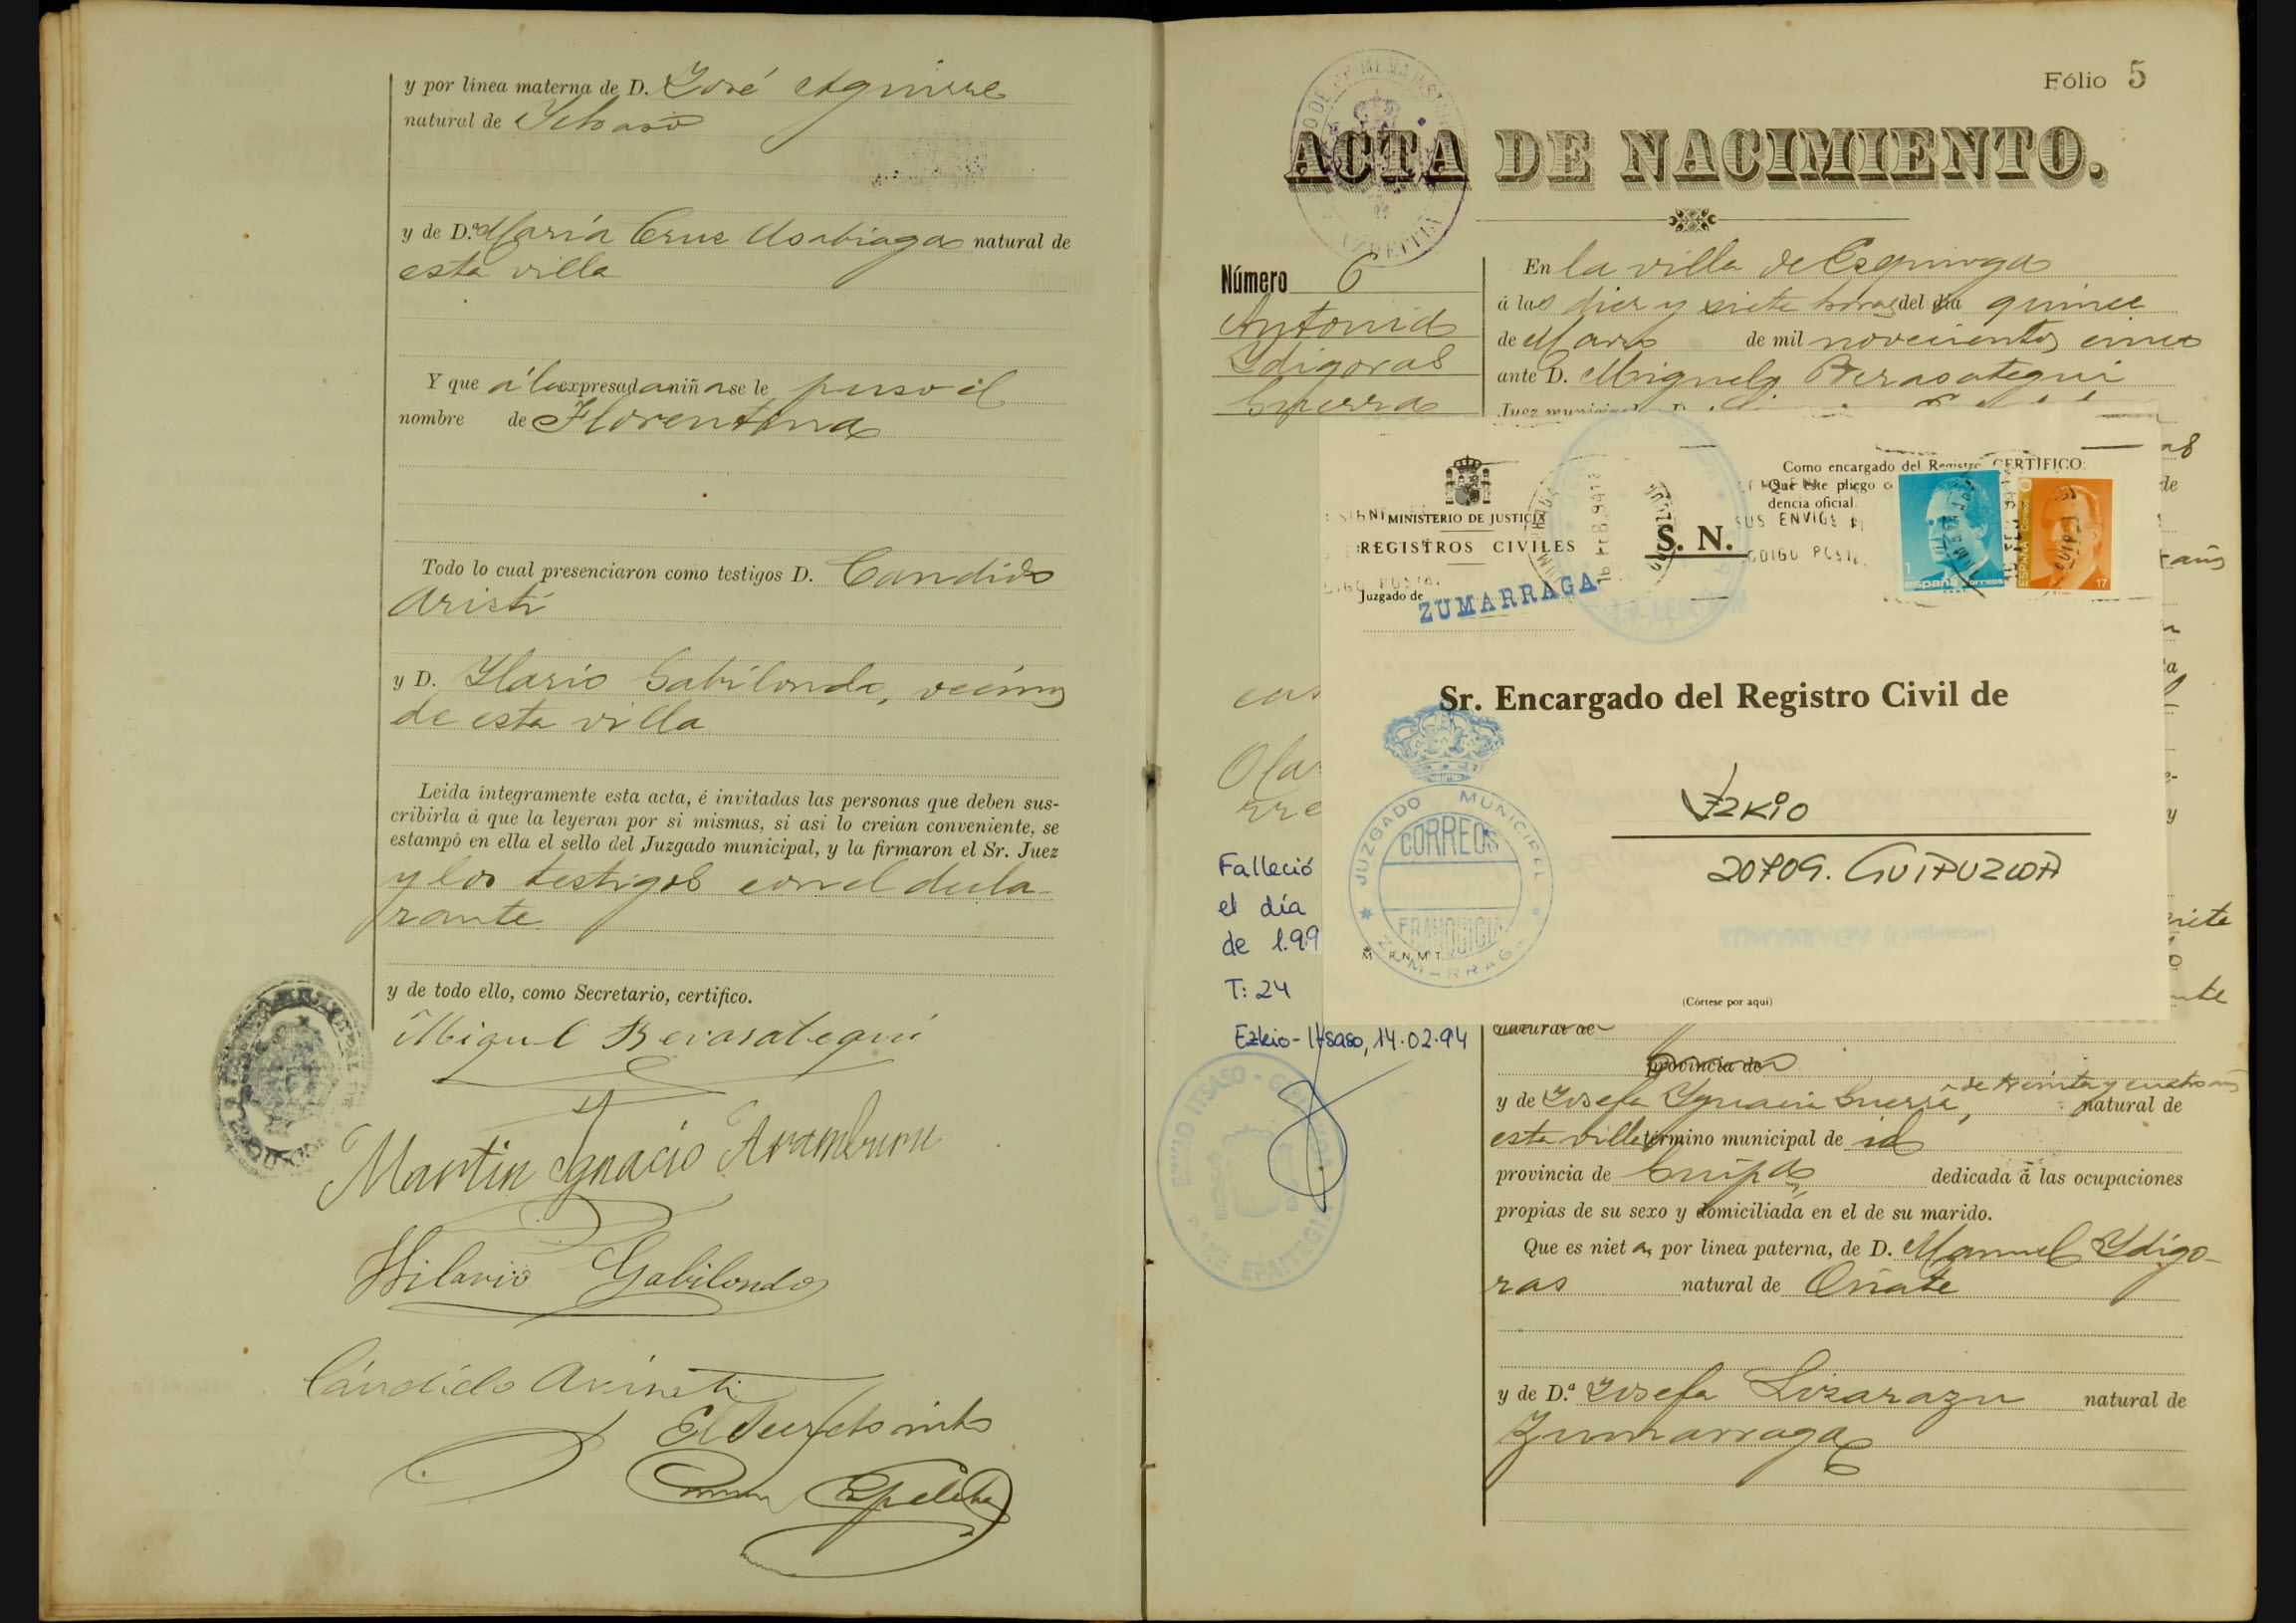 y por línea materna de D. José Aguirre
natural de Ichaso
y de D.ª María Cruz Usabiaga natural de
esta villa
Y que á la expresada niña se le puso el
nombre de Florentina
Todo lo cual presenciaron como testigos D. Candido
Aristi
y D. Ilario Gabilondo, vecinos
de esta villa
Leida íntegramente esta acta, é invitadas las personas que deben sus-
cribirla á que la leyeran por si mismas, si asi lo creian conveniente, se
estampó en ella el sello del Juzgado municipal, y la firmaron el Sr. Juez
y los testigos con el decla-
rante
y de todo ello, como Secretario, certifico.
Miguel Berasategui
Martin Ygnacio Aramburu
Hilario Gabilondo
Cándido Aristi
Fólio 5
ACTA DE NACIMIENTO.
AZPEITIA
Número 6
Antonia
Ydigoras
Guerra
En la villa de Ezquioga
á las diez y siete horas del dia quince
de Marzo de mil novecientos cinco
ante D. Miguel Berasategui
Juez municipal
MINISTERIO DE JUSTICIA
REGISTROS CIVILES
Juzgado de
ZUMARRAGA
S. N.
Como encargado del Registro CERTIFICO:
Que este pliego
dencia oficial.
SUS ENVIOS
CODIGO POSTAL
1 españa correos
ESPAÑA correos 17
Sr. Encargado del Registro Civil de
IZKIO
20709. GUIPUZCOA
JUZGADO MUNICIPAL
CORREOS
FRANQUICIA
ZUMARRAGA
(Córtese por aquí)
Falleció
el día
de 1.99
T: 24
Ezkio-Itsaso, 14.02.94
EZKIO ITSASO - GIPUZKOA
BAKE EPAITEGIA
natural de
provincia de
y de Josefa Ygnacia Guerra, de treinta y cuatro años natural de
esta villa término municipal de id
provincia de Guipª dedicada á las ocupaciones
propias de su sexo y domiciliada en el de su marido.
Que es nieta, por línea paterna, de D. Manuel Ydígo-
ras natural de Oñate
y de D.ª Josefa Lizarazu natural de
Zumarraga